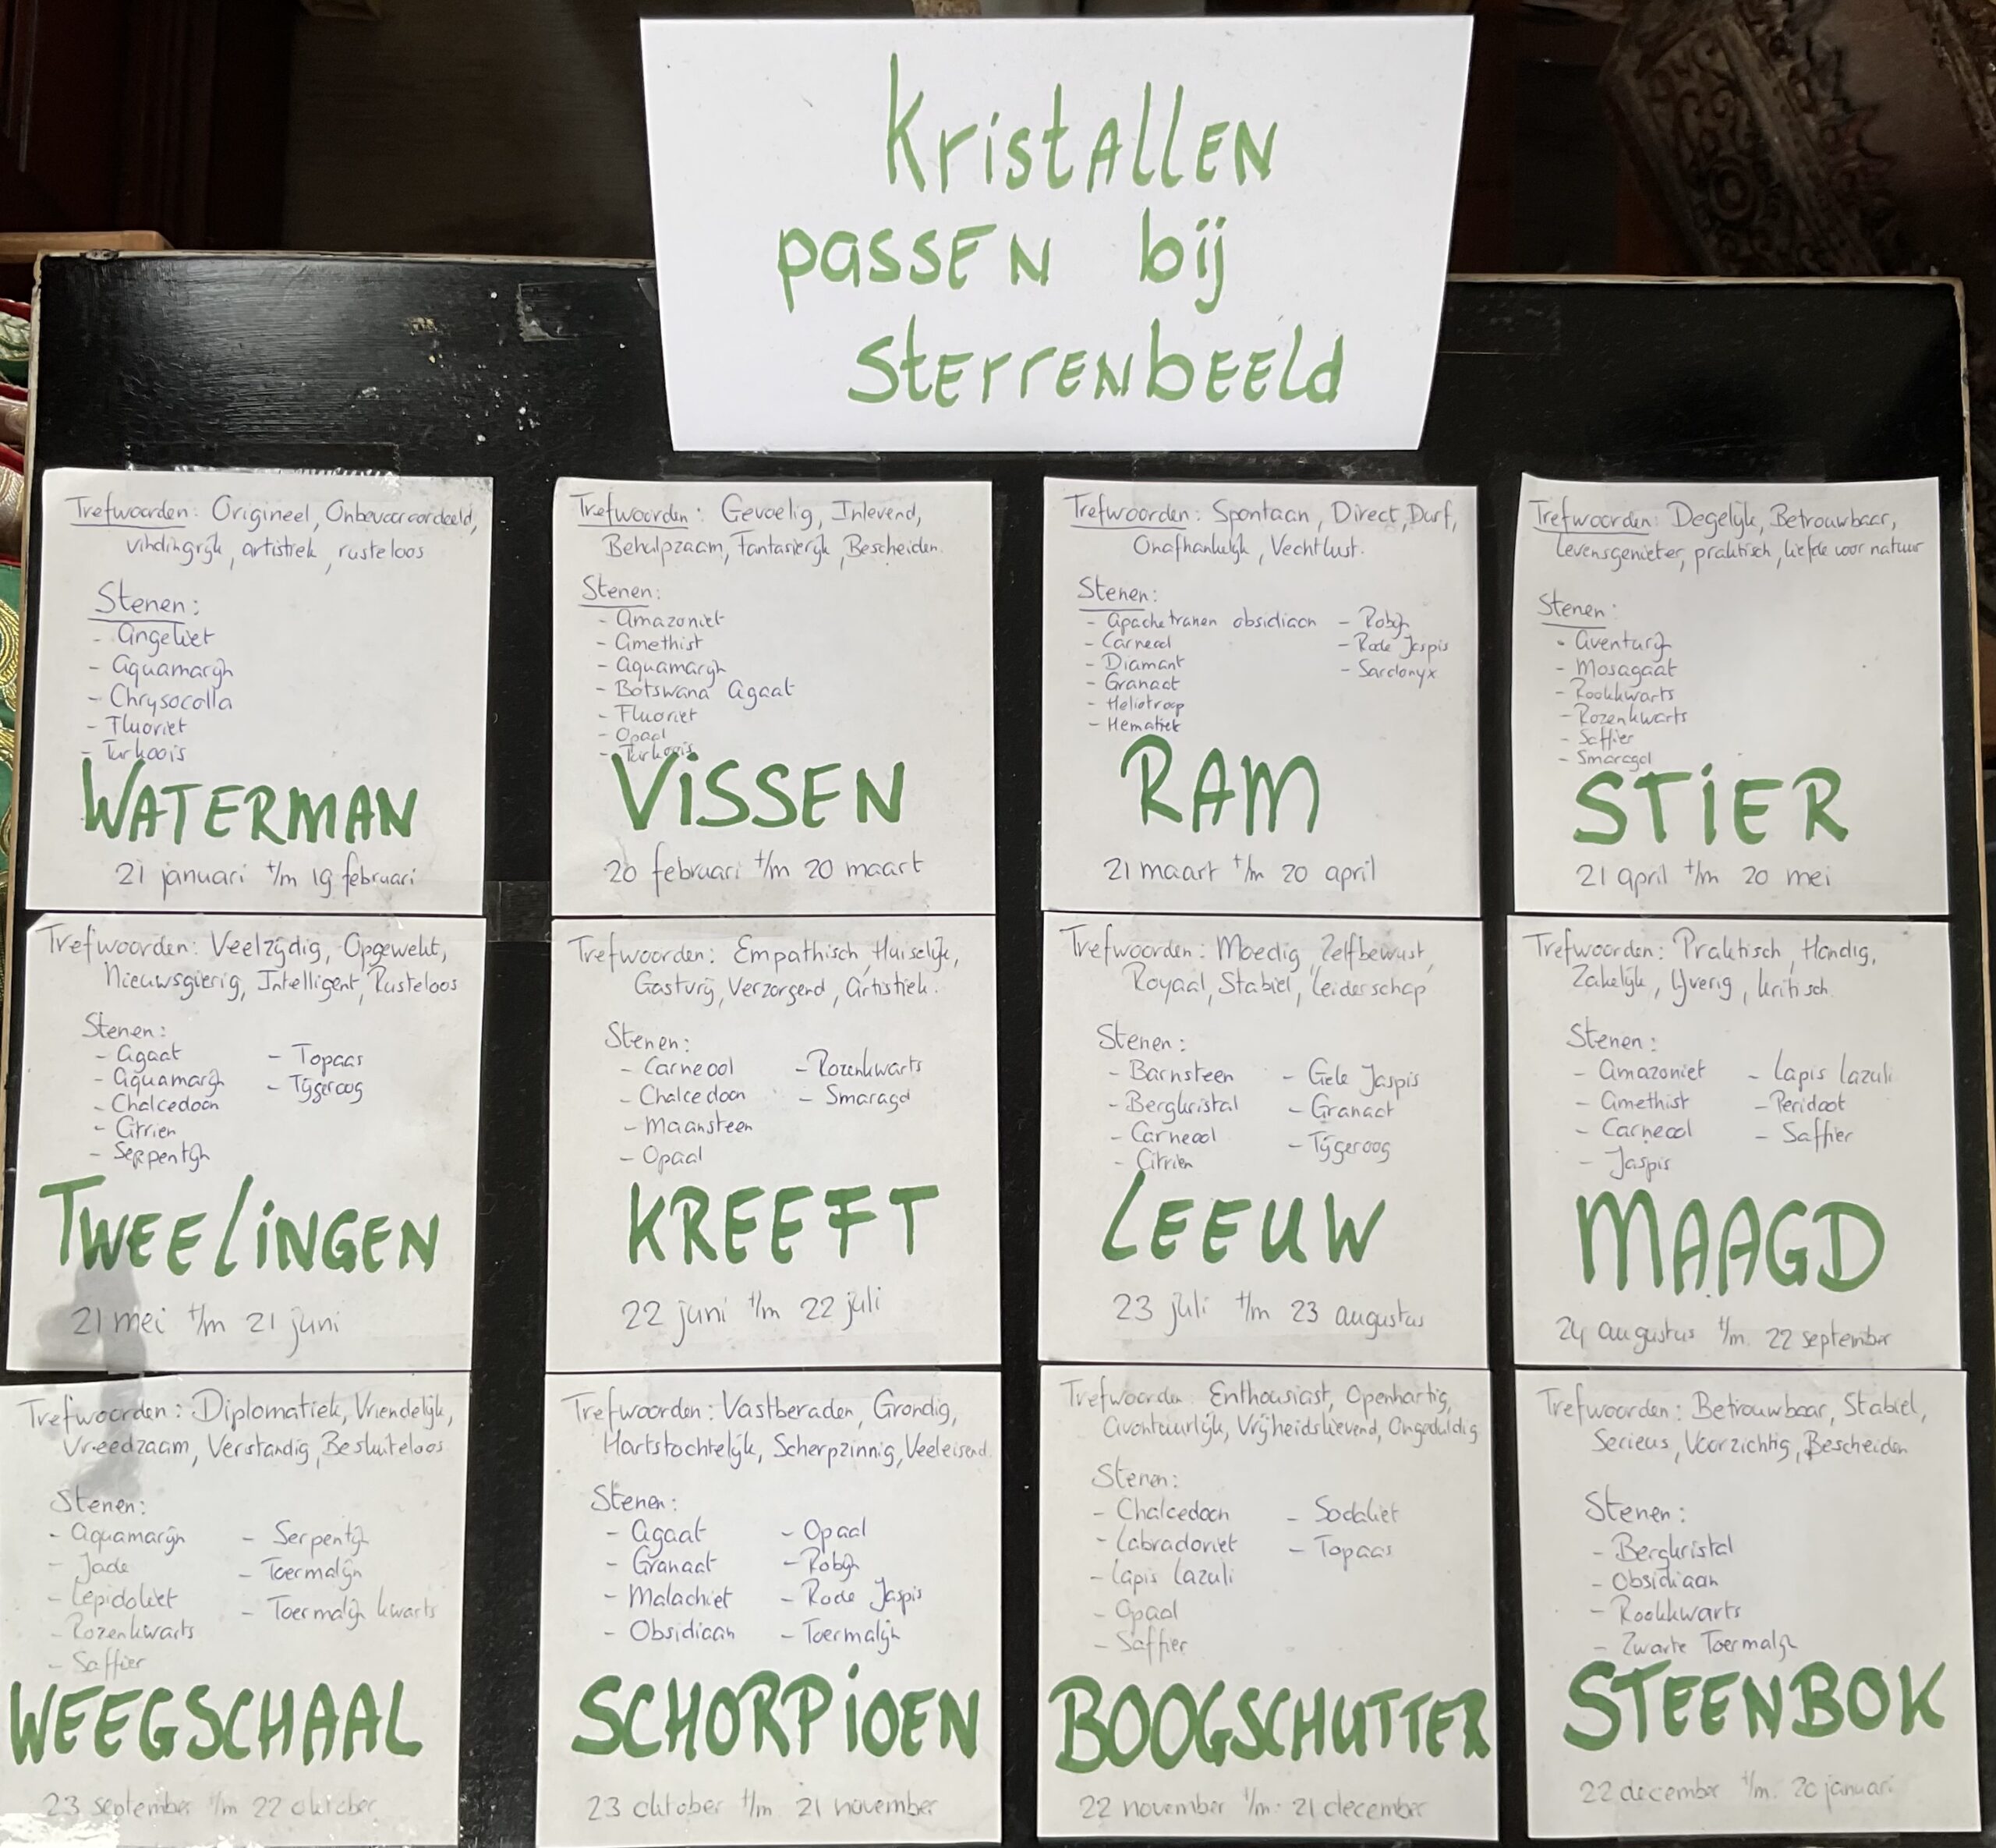 Kristallen
passen bij
Sterrenbeeld
Trefwoorden: Origineel, Onbevooroordeeld,
vindingrijk, artistiek, rusteloos
Stenen:
- Angeliet
- Aquamarijn
- Chrysocolla
- Fluoriet
- Turkoois
WATERMAN
21 januari t/m 19 februari
Trefwoorden: Gevoelig, Inlevend,
Behulpzaam, Fantasierijk, Bescheiden.
Stenen:
- Amazoniet
- Amethist
- Aquamarijn
- Botswana Agaat
- Fluoriet
- Opaal
- Turkoois
VISSEN
20 februari t/m 20 maart
Trefwoorden: Spontaan, Direct, Durf,
Onafhankelijk, Vechtlust.
Stenen:
- Apachetranen obsidiaan
- Carneool
- Diamant
- Granaat
- Heliotroop
- Hematiet
- Robijn
- Rode Jaspis
- Sardonyx
RAM
21 maart t/m 20 april
Trefwoorden: Degelijk, Betrouwbaar,
Levensgenieter, praktisch, liefde voor natuur
Stenen:
- Aventurijn
- Mosagaat
- Rookkwarts
- Rozenkwarts
- Saffier
- Smaragd
STIER
21 april t/m 20 mei
Trefwoorden: Veelzijdig, Opgewekt,
Nieuwsgierig, Intelligent, Rusteloos
Stenen:
- Agaat
- Aquamarijn
- Chalcedoon
- Citrien
- Serpentijn
- Topaas
- Tijgeroog
TWEELINGEN
21 mei t/m 21 juni
Trefwoorden: Empathisch, Huiselijk,
Gastvrij, Verzorgend, Artistiek.
Stenen:
- Carneool
- Chalcedoon
- Maansteen
- Opaal
- Rozenkwarts
- Smaragd
KREEFT
22 juni t/m 22 juli
Trefwoorden: Moedig, Zelfbewust,
Royaal, Stabiel, Leiderschap
Stenen:
- Barnsteen
- Bergkristal
- Carneool
- Citrien
- Gele Jaspis
- Granaat
- Tijgeroog
LEEUW
23 juli t/m 23 augustus
Trefwoorden: Praktisch, Handig,
Zakelijk, IJverig, kritisch.
Stenen:
- Amazoniet
- Amethist
- Carneool
- Jaspis
- Lapis Lazuli
- Peridoot
- Saffier
MAAGD
24 augustus t/m. 22 september
Trefwoorden: Diplomatiek, Vriendelijk,
Vreedzaam, Verstandig, Besluiteloos
Stenen:
- Aquamarijn
- Jade
- Lepidoliet
- Rozenkwarts
- Saffier
- Serpentijn
- Toermalijn
- Toermalijn kwarts
WEEGSCHAAL
23 september t/m 22 oktober
Trefwoorden: Vastberaden, Grondig,
Hartstochtelijk, Scherpzinnig, Veeleisend
Stenen:
- Agaat
- Granaat
- Malachiet
- Obsidiaan
- Opaal
- Robijn
- Rode Jaspis
- Toermalijn
SCHORPIOEN
23 oktober t/m 21 november
Trefwoorden: Enthousiast, Openhartig,
Avontuurlijk, Vrijheidslievend, Ongeduldig
Stenen:
- Chalcedoon
- Labradoriet
- Lapis Lazuli
- Opaal
- Saffier
- Sodaliet
- Topaas
BOOGSCHUTTER
22 november t/m. 21 december
Trefwoorden: Betrouwbaar, Stabiel,
Serieus, Voorzichtig, Bescheiden
Stenen:
- Bergkristal
- Obsidiaan
- Rookkwarts
- Zwarte Toermalijn
STEENBOK
22 december t/m. 20 januari